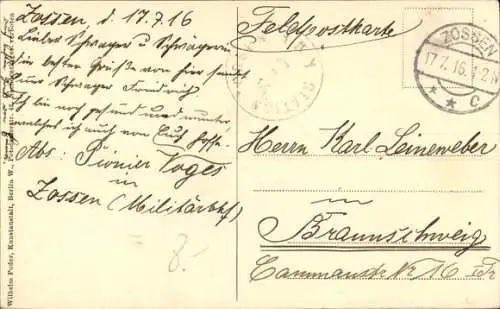 Zossen, d. 17.7.16
Lieber Schwager u Schwägerin
die besten Grüße von hier sendet
Euer Schwager Friedrich
Ich bin noch gesund und munter,
welches ich auch von Euch hoffe.
Abs: Pionier Voges
in
Zossen (Militärbhf)
8.-
Wilhelm Puder, Kunstanstalt, Berlin W.,
Feldpostkarte
ZOSSEN
17.7.16.
* * c
Herrn Karl Leineweber
in
Braunschweig
Cammanstr Nr 16 I Tr